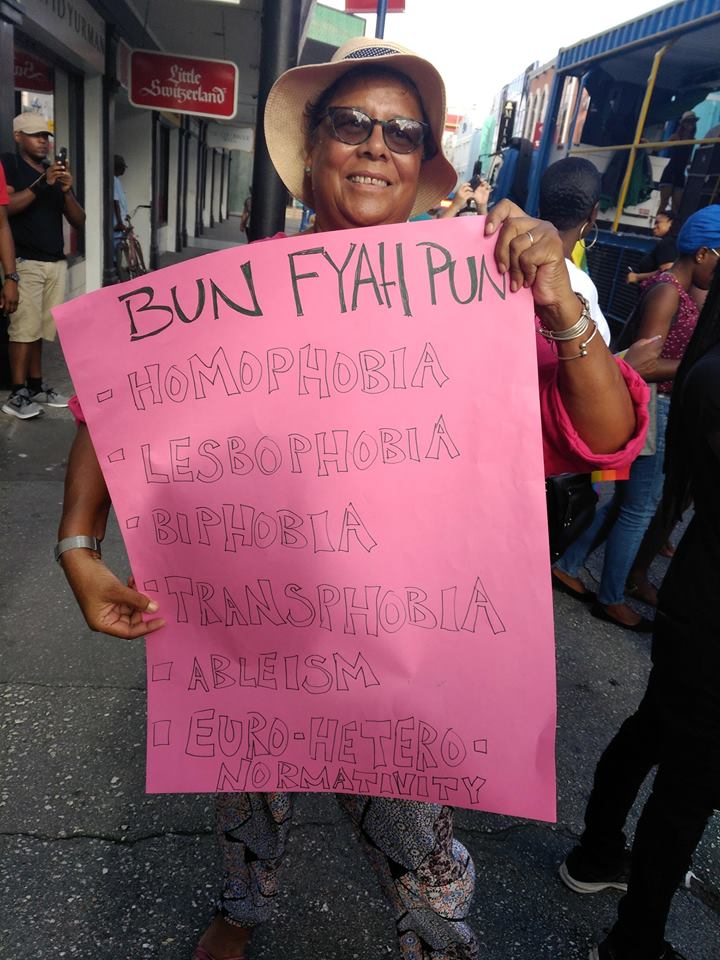 DYURMAN
Little
Switzerland
BUN FYAH PUN
- HOMOPHOBIA
- LESBOPHOBIA
- BIPHOBIA
- TRANSPHOBIA
- ABLEISM
- EURO-HETERO-
NORMATIVITY